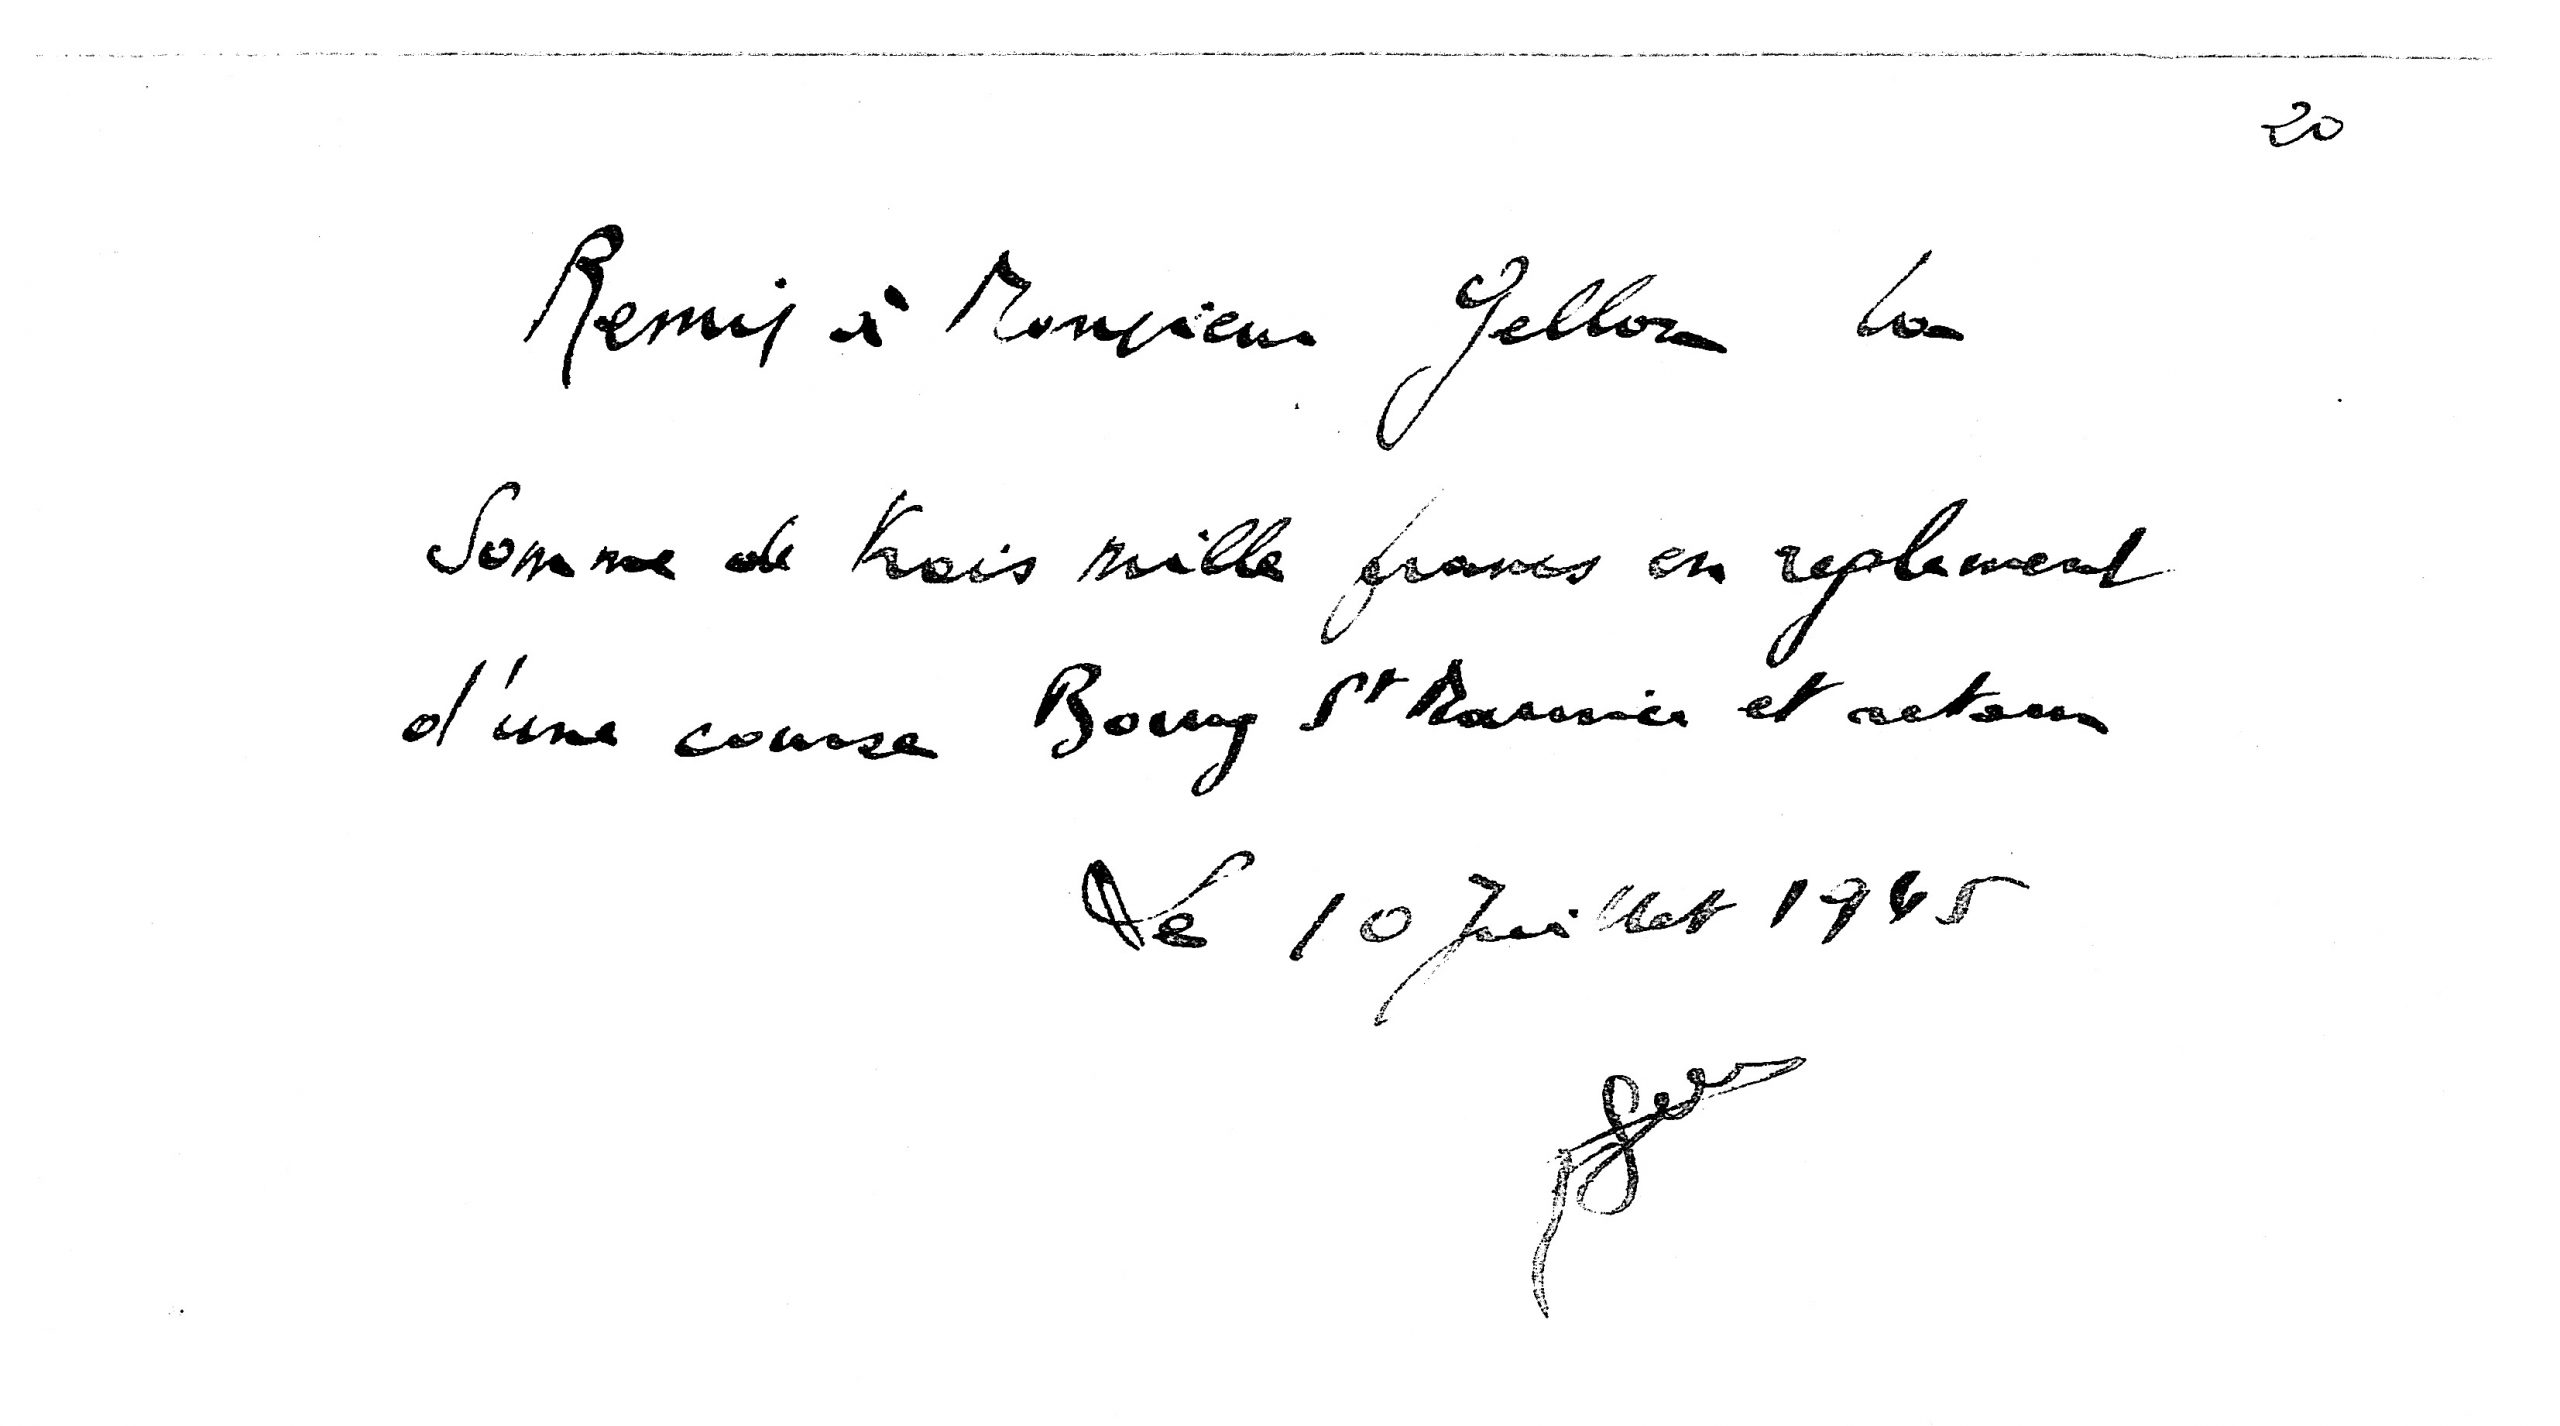 20
Remis à Monsieur Gellon la
Somme de trois mille francs en reglement
d'une course Bourg St Maurice et retour
Le 10 Juillet 1945